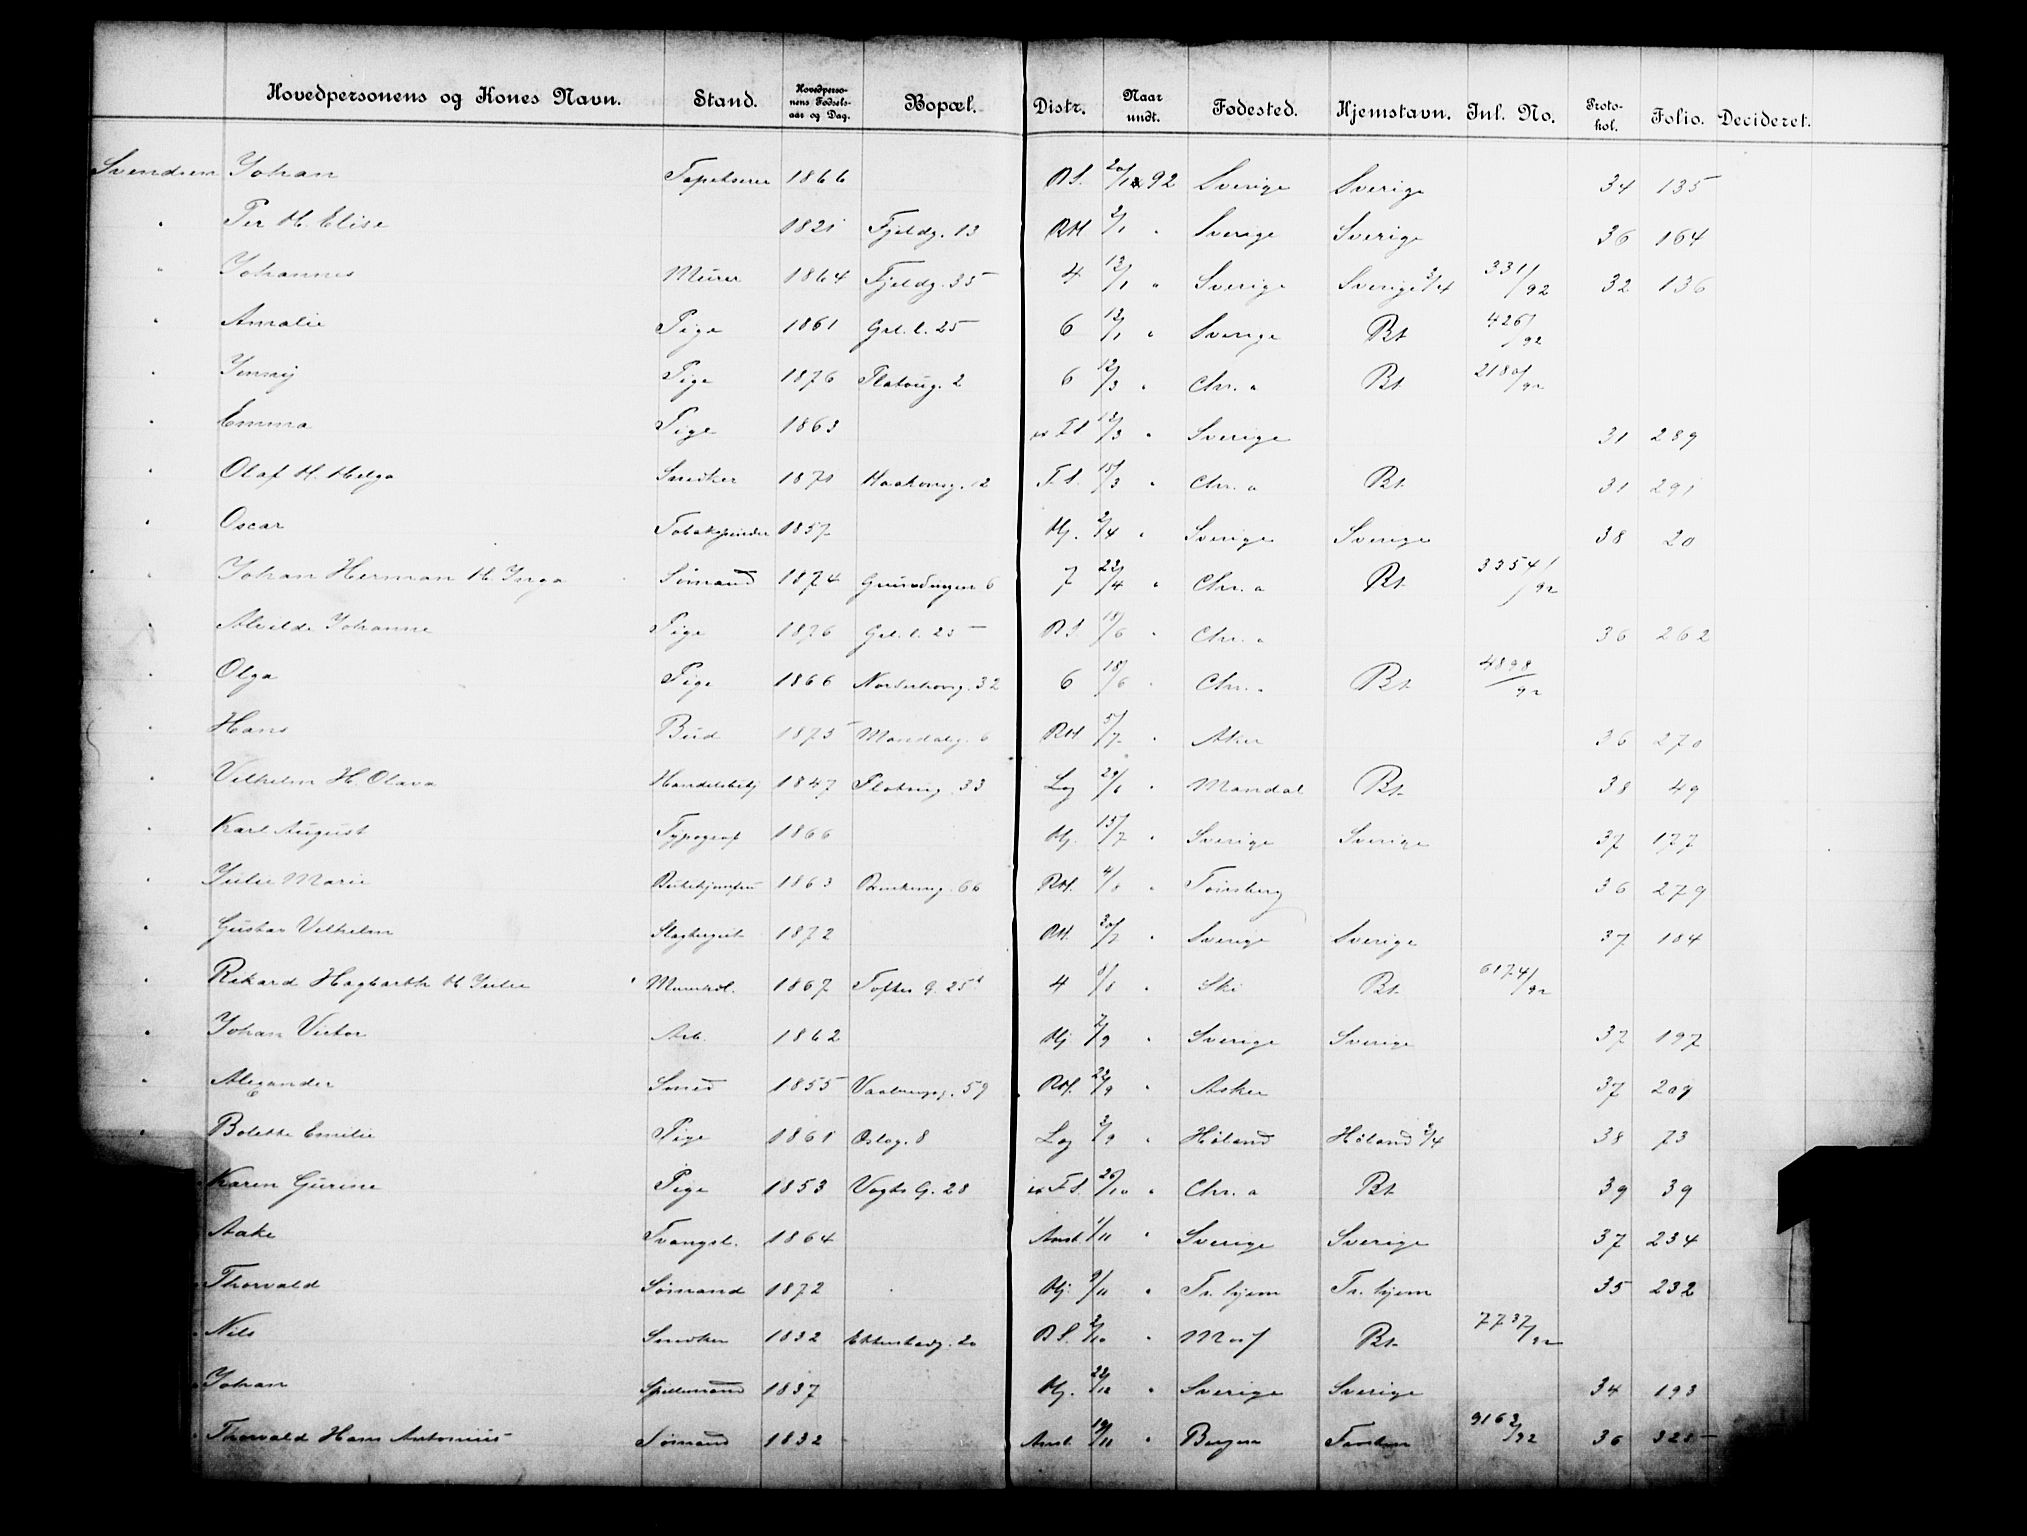 Hovedpersonens og Kones Navn. Stand. Hovedpersonens Fødselsaar og Dag. Bopæl. Distr. Naar undt. Fødested. Hjemstavn. Inl. No. Protokol. Folio. Decideret.
Svendsen Johan Tapetserer 1866 B S. 20/1 92 Sverige Sverige 34 135
" Per H. Elise 1821 Fjeldg. 13 RH 2/1 " Sverige Sverige 36 164
" Johannes Murer 1864 Fjeldg. 35 4 12/1 " Sverige Sverige 3/4 331/92 32 136
" Amalie Pige 1861 Grl. l. 25 6 12/1 " Sverige Bt 426/92
" Jenny Pige 1876 Platoug. 2 6 12/3 " Chr. a Bt. 2180/92
" Emma Pige 1863 F S 12/3 " Sverige 31 289
" Olaf H. Helga Snedker 1871 Haakonsg. 12 F. S. 15/3 " Chr. a Bt. 31 291
" Oscar Tobakspinder 1857 Hj. 2/4 " Sverige Sverige 38 20
" Johan Herman H. Inga Sømand 1874 Grundingen 6 7 22/4 " Chr. a Bt. 3354/92
" Alvilde Johanne Pige 1876 Grl. l. 25 B S. 18/6 " Chr. a 36 262
" Olga Pige 1866 Norderhovg. 32 6 18/6 " Chr. a Bt. 4898/92
" Hans Bud 1875 Mandalsg. 6 RH 5/7 " Aker 36 270
" Vilhelm H. Olava Handelsbetj 1847 Platoug. 33 Log 29/6 " Mandal Bt. 38 49
" Karl August Typograf 1866 Hj. 15/7 " Sverige Sverige 37 177
" Julie Marie Butikjomfru 1863 66 RH. 4/8 " Tønsberg 36 279
" Gustav Vilhelm 1872 RH. 30/7 " Sverige Sverige 37 184
" Rikard Hagbarth H Julie 1867 Toftes G. 25 4 8/8 " Ski Bt. 6174/92
" Johan Victor Arb. 1862 Hj 7/9 " Sverige Sverige 37 197
" Alexander Smed 1855 Vaalerengg. 59 RH. 22/9 " Asker 37 209
" Bolette Emilie Pige 1861 Oslog. 8 Log 3/9 " Høland Høland 3/4 38 73
" Karen Gurine Pige 1853 Vogts G. 28 F S. 26/10 " Chr. a Bt. 39 39
Aake Tvangsl. 1864 Anst. 1/11 " Sverige Sverige 37 234
Thorvald Sømand 1872 Hj. 9/11 " Tr. hjem Tr. hjem 35 232
" Nils Snedker 1832 Ekkersbedg. 20 B S. 2/10 " Moss Bt. 7737/92
" Johan Spillemand 1837 Hj. 22/12 " Sverige Sverige 34 193
" Thorvald Hans Antonius Sømand 1832 Anst. 19/11 " Bergen 9162/92 36 325